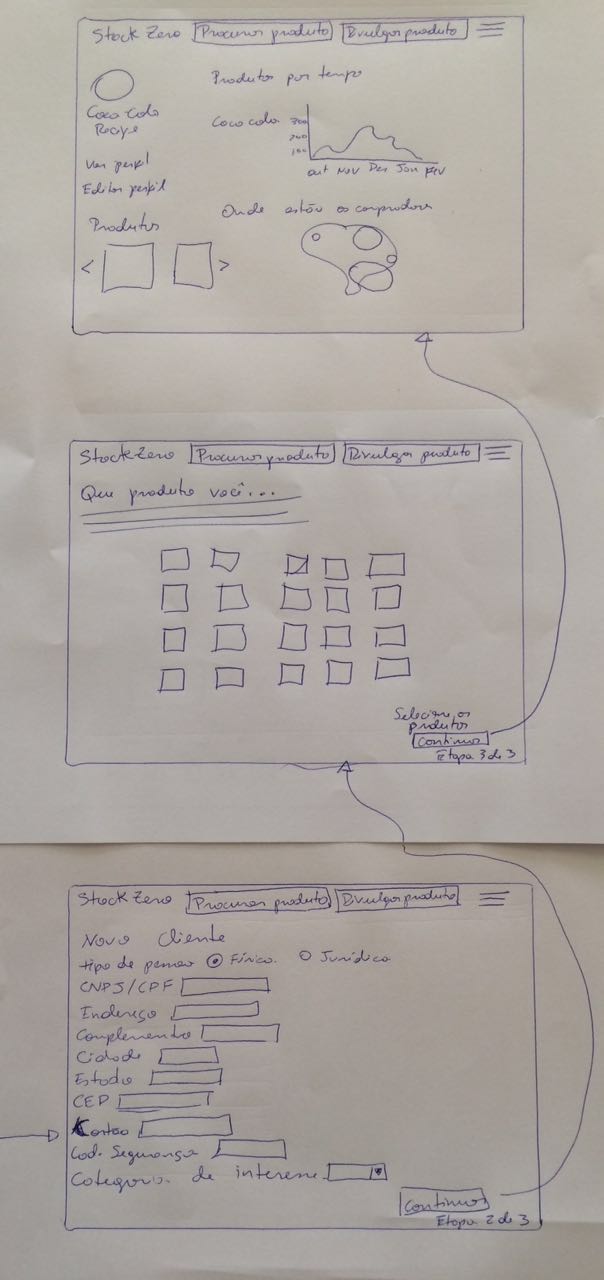 Stock Zero Procurar produto Divulgar produto
Produtos por tempo
Coca Cola
Recife
Coca cola
300
200
100
out Nov Dez Jan Fev
Ver perfil
Editar perfil
Onde estão os compradores
Produtos
< >
Stock Zero Procurar produto Divulgar produto
Que produto você...
Selecione os
produtos
Continuar
Etapa 3 de 3
Stock Zero Procurar produto Divulgar produto
Novo Cliente
tipo de pessoa Física Jurídica
CNPJ/CPF
Endereço
Complemento
Cidade
Estado
CEP
Cartão
Cod. Segurança
Categoria de interesse
Continuar
Etapa 2 de 3